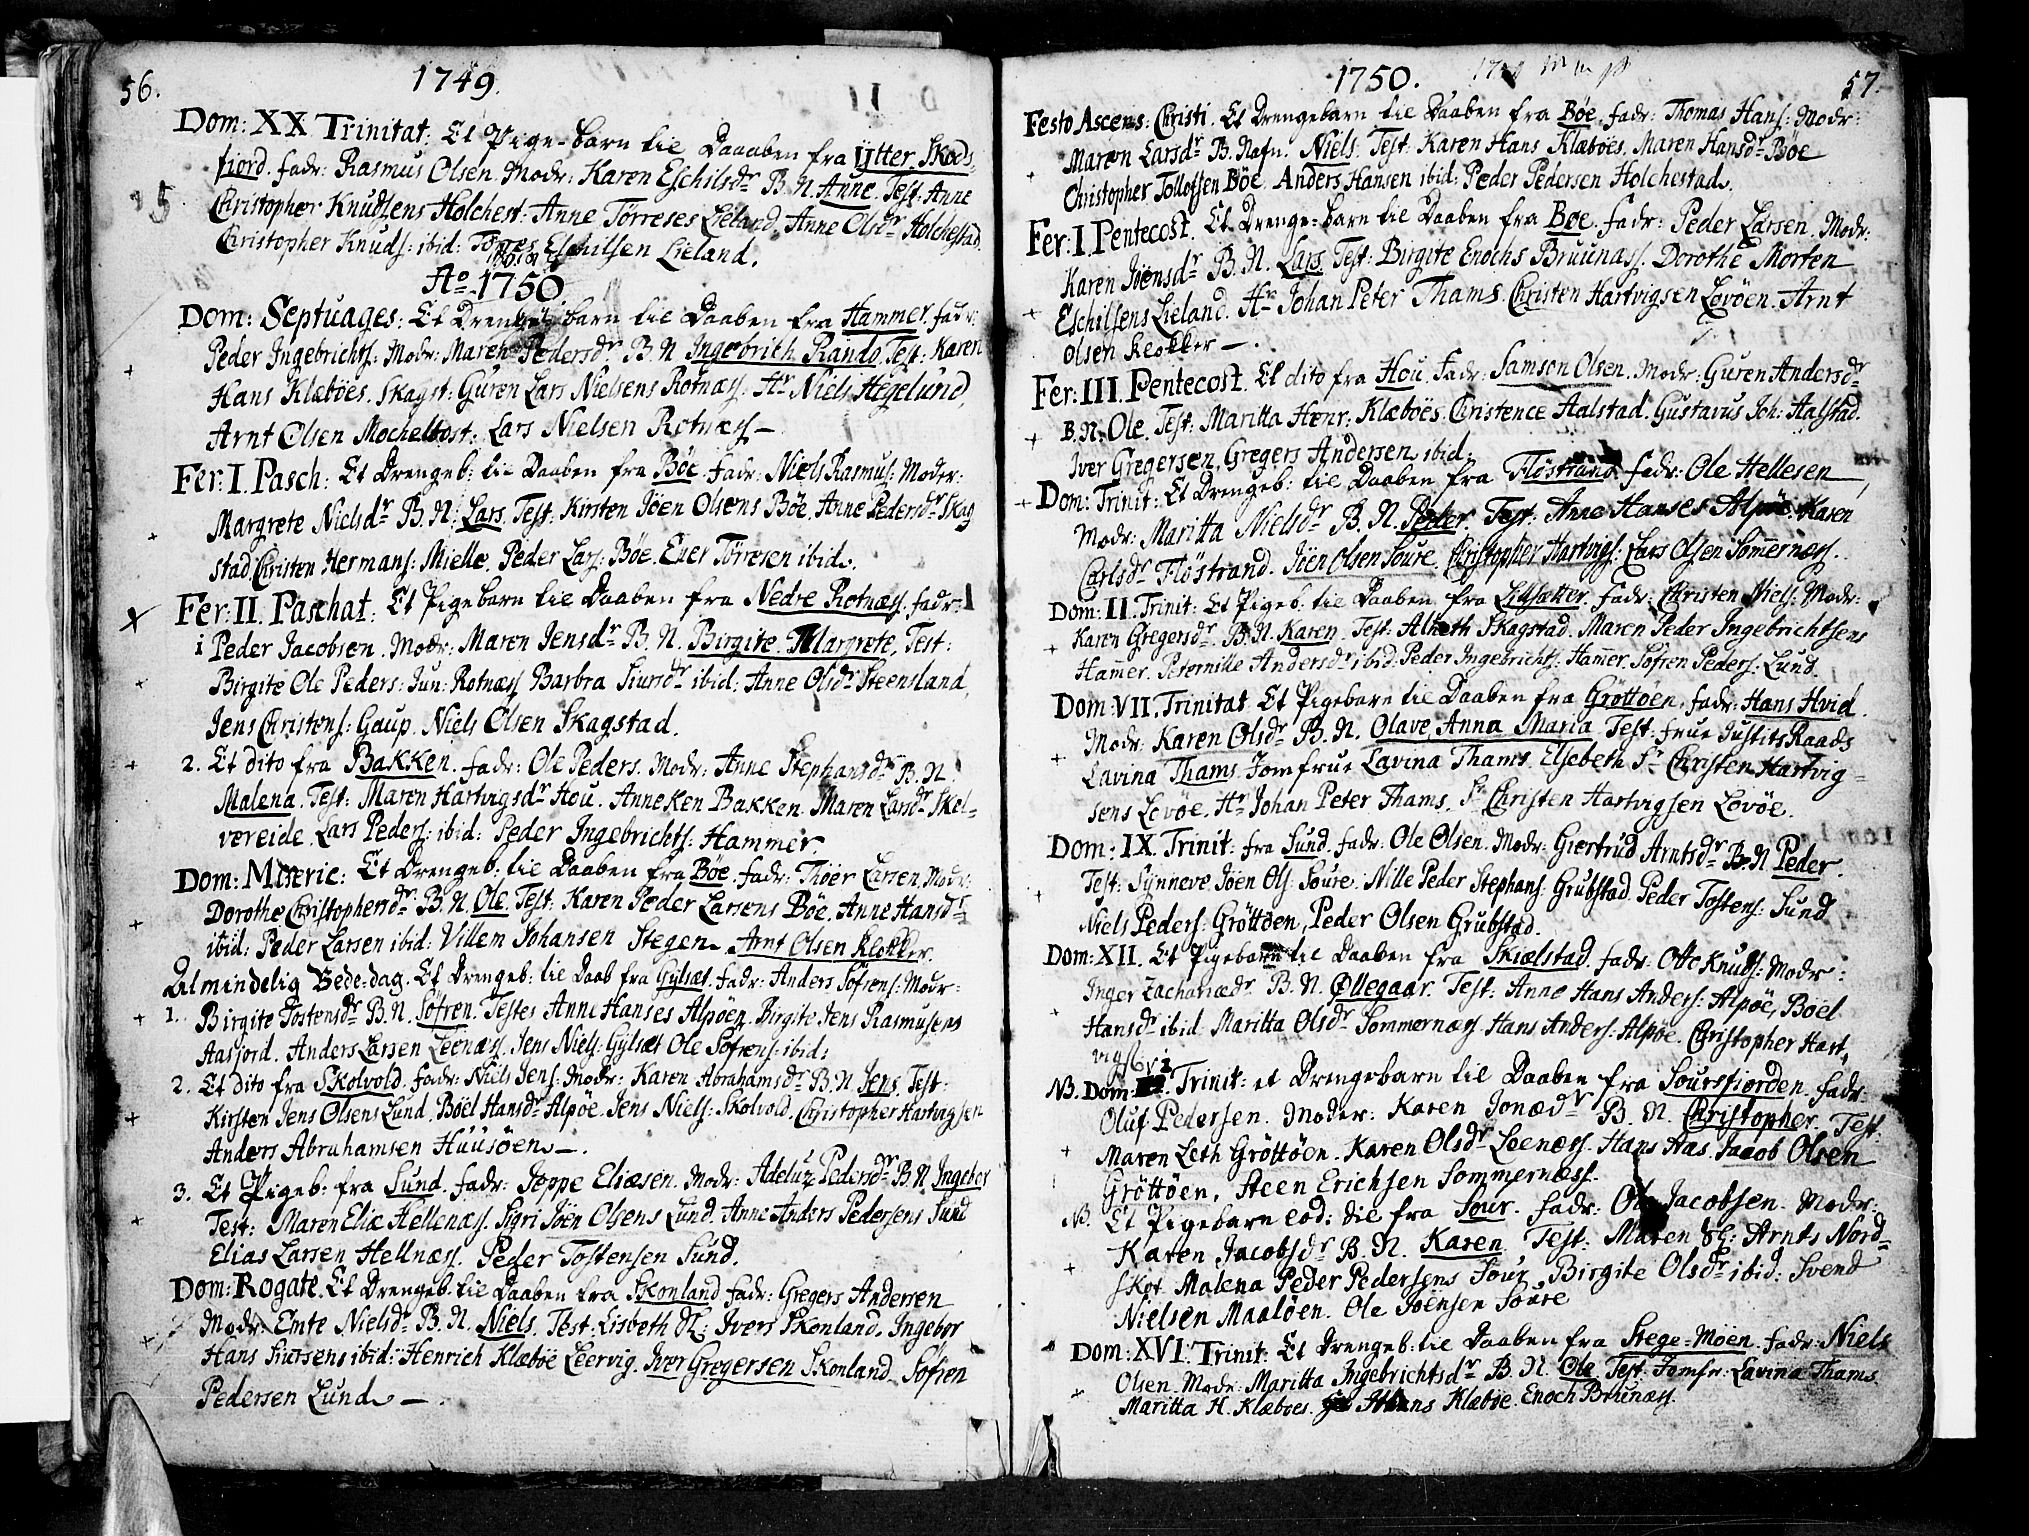 56.
1749.
Dom: XX Trinitat: Et Pige-barn til Daaaben fra Ÿtter Skods
fiord. fadr: Rasmus Olsen. Modr: Karen Eschilsdr B. N. Anne. Test: Anne
Christopher Knudsens Holchest: Anne Törreses Lieland. Anne Olsdr Holchestad.
Christopher Knuds: ibid: Eschilsen Lieland.
Ao 1750
Dom: Septuages: Et Drenge barn til Daaben fra Hammer. fadr:
Peder Ingebrichts: Modr: Maren Pedersdr B. N. Ingebrith Rando. Test: Karen
Hans Klæböes. Skagst: Guren Lars Nielsens Rotnæss. Hr Niels Hegelund,
Arnt Olsen Mochelbost: Lars Nielsen Rotnæss —
Fer: I. Pasch: Et Drengeb: til Daaben fra Böe. Fadr: Niels Rasmus: Moder:
Margrete Nielsdr B. N: Lars. Test: Kirsten Jöen Olsens Böe. Anne Pedersdr Skag
stad, Christen Hermans: Mielle. Peder Lars: Böe. Ener Törresen ibid.
Fer: II. Paschat: Et Pigebarn til Daaben fra Nedre Rotnæss. fadr:
1 Peder Jacobsen. Modr: Maren Jensdr B. N. Birgite Margrete. Test:
Birgite Ole Peders: Jun: Rotnæss Barbra Siursdr ibid: Anne Olsdr Steensland,
Jens Christens: Gaup. Niels Olsen Skagstad.
2. Et dito fra Bakken. fadr: Ole Peders. Modr: Anne Stephansdr B. N.
Malena. Test: Maren Hartvigsdr Hou. Anne Ken Bakken. Maren Larsdr Skel-
vereide. Lars Peders: ibid: Peder Ingebrichts: Hammer
Dom: Miseric: Et Drengeb: til Daaben fra Böe. fadr: Thöer Larsen. Modr:
Dorothe Christophersdr B. N. Ole. Test: Karen Peder Larsens Böe. Anne Hansdr
ibid: Peder Larsen ibid: Villem Johansen Stegen. Arnt Olsen Klokker.
Almindelig Bede-dag. Et Drengeb: til Daab fra Gylset. fadr: Anders Söfrens: Modr:
1. Birgite Tostensdr B. N. Söfren. Testes Anne Hanses Alpöen. Birgite Jens Rasmusens
Aasjord. Anders Larsen Leenæss. Jens Niels: Gylset Ole Söfrens: ibid:
2. Et dito fra Skolvold. fadr: Niels Jens: Modr: Karen Abrahamsdr B. N. Jens. Test:
Kirsten Jens Olsens Lund. Böel Hansdr Alpöe. Jens Niels: Skolvold. Christopher Hartvigsen
Anders Abrahamsen Huusöen —.
3. Et Pigeb: fra Sund. fadr: Joppe Eliæsen. Modr: Adeluz Pedersdr B. N. Ingebor
Test: Maren Eliæ Hellenæss. Sigri Jöen Olsens Lund. Anne Anders Pedersens Sund
Elias Larsen Hellnæss. Peder Tostensen Sund.
Dom: Rogate. Et Drengeb. til Daaben fra Skonland fadr: Gregers Andersen
Modr: Emte Nielsdr B. N. Niels. Test: Lisbeth Sl: Ivers Skonland. Ingebor
Hans Siursens ibid: Henrich Klæböe Leervig. Iver Gregersen Skonland. Söfren
Pedersen Lund. —.
1750.
57.
Festo Ascens: Christi. Et Drengebarn til Daaben fra Böe. fadr: Thomas Hans: Modr:
Maren Larsdr B. Nafn. Niels. Test: Karen Hans Klæböes. Maren Hansdr Böe
Christopher Tollofsen Böe. Anders Hansen ibid: Peder Pedersen Holchestad.
Fer: I. Pentecost. Et Drenge-barn til Daaben fra Böe. fadr: Peder Larsen. Modr:
Karen Jöensdr B. N. Lars. Test: Birgite Enochs Bruunæss. Dorothe Morten
Eschilsens Lieland. Hr Johan Peter Thams. Christen Hartvigsen Lovöen. Arnt
Olsen Klokker —.
Fer: III. Pentecost. Et dito fra Hou. Fadr: Samson Olsen. Modr: Guren Andersdr
B. N. Ole. Test: Maritta Henr: Klæböes. Christence Aalstad. Gustavus Joh: Aalstad.
Iver Gregersen, Gregers Andersen ibid:
Dom: Trinit: Et Drengeb: til Daaben fra Flöstrand fadr: Ole Hellesen
Modr: Maritta Nielsdr B. N. Peder. Test: Anne Hanses Alpöe. Karen
Carlsdr Flöstrand. Jöen Olsen Soure. Christopher Hartvigs: Lars Olsen Somernæss.
Dom: II. Trinit: Et Pigeb: til Daaben fra Lilsætter. Fadr: Christen Niels. Modr:
Karen Gregersdr B. N. Karen. Test: Skagstad. Maren Peder Ingebrichtsens
Hamer. Peternille Andersdr ibid: Peder Ingebrichts: Hamer. Söfren Peders: Lund.
Dom: VII. Trinitat. Et Pigebarn til Daaben fra Gröttöen. fadr: Hans Hvid.
Modr: Karen Olsdr B. N. Olave Anna Maria Test: frue Justits Raads
Lavina Thams. Jomfrue Lavina Thams. Elsebeth Sr Christen Hartvig-
sens Lovöe. Hr Johan Peter Thams. Sr Christen Hartvigsen Lovöe.
Dom: IX. Trinit: fra Sund. fadr: Ole Olsen. Modr: Giertrud Arntsdr B. N. Peder.
Test: Synneve Jöen Ols: Soure. Nille Peder Stephans: Grubstad. Peder Tostens: Sund
Niels Peders: Gröttöen, Peder Olsen Grubstad.
Dom: XII. Et Pigebarn til Daaben fra Skielstad. fadr: Otto Knuds: Modr:
Inger Zachariædr B. N. Ollegaar. Test: Anne Hans Anders: Alpöe, Boel
Hansdr ibid. Maritta Olsdr Sommernæss. Hans Anders: Alpöe. Christopher Hart,
vigs:
NB. Dom Trinit: et Drengebarn til Daaben fra Soursfiorden. fadr:
Oluf Pedersen. Moder: Karen Jonædr B. N. Christopher. Test:
Maren Leth Gröttöen. Karen Olsdr Leenæss. Hans Aas. Jacob Olsen
Gröttöen, Steen Erichsen Sommernæss.
NB. Et Pigebarn eod: die fra Sour. fadr: Ole Jacobsen. Modr:
Karen Jacobsdr B. N. Karen. Test: Maren Sl: Arnts Nord-
skot. Malena Peder Pedersens Sour. Birgite Olsdr ibid: Svend
Nielsen Maalöen. Ole Jöensen Soure
Dom: XVI. Trinit: Et Drengeb: til Daaben fra Stege-Moen. fadr: Niels
Olsen. Modr: Maritta Ingebrichtsdr B. N. Ole. Test: Jomfr: Lavina Thams
Maritta H. Klæboes. Hans Klæböe. Enoch Brunæss.